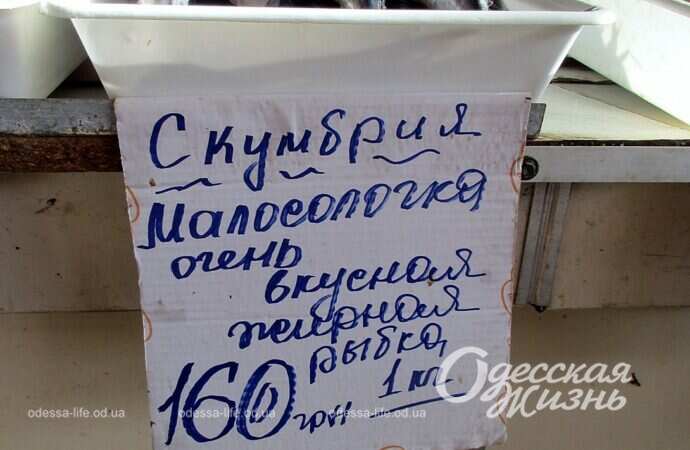 Скумбрия
Малосолочка
очень
вкусная
жирная
рыбка
160 грн 1 кг
Одесская
Жизнь
odessa-life.od.ua odessa-life.od.ua odessa-life.od.ua